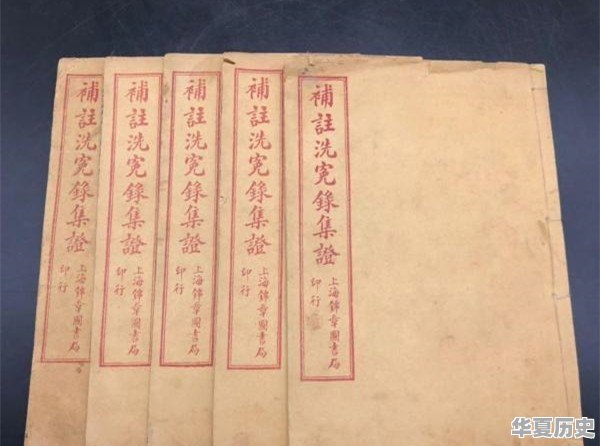 補註洗寃錄集證
上海錦章圖書局
印行
補註洗寃錄集證
上海錦章圖書局
印行
補註洗寃錄集證
上海錦章圖書局
印行
補註洗寃錄集證
上海錦章圖書局
印行
補註洗寃錄集證
上海錦章圖書局
印行
华夏历史